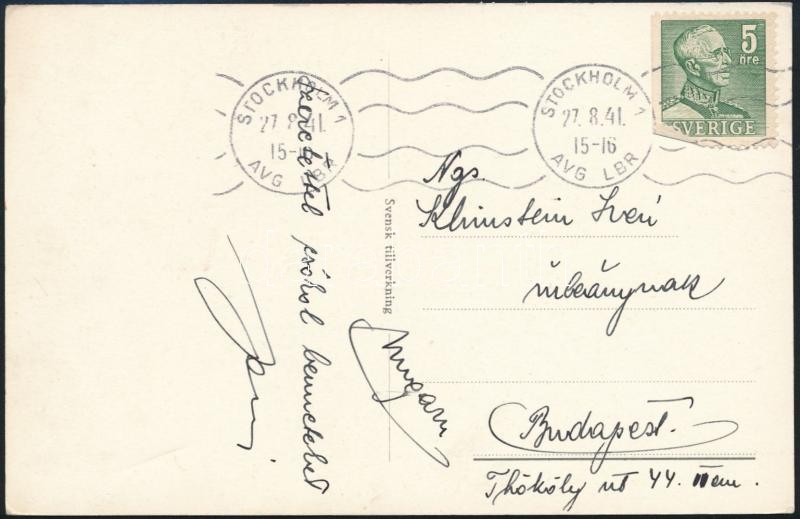 5
öre
SVERIGE
STOCKHOLM 1
27.8.41.
15-16
AVG LBR
STOCKHOLM 1
27.8.41.
15-16
AVG LBR
Szeretettel csókol benneteket
Svensk tillverkning
Ngs.
Klinstein
úrleánynak
Budapest.
Thököly út 44. II em.